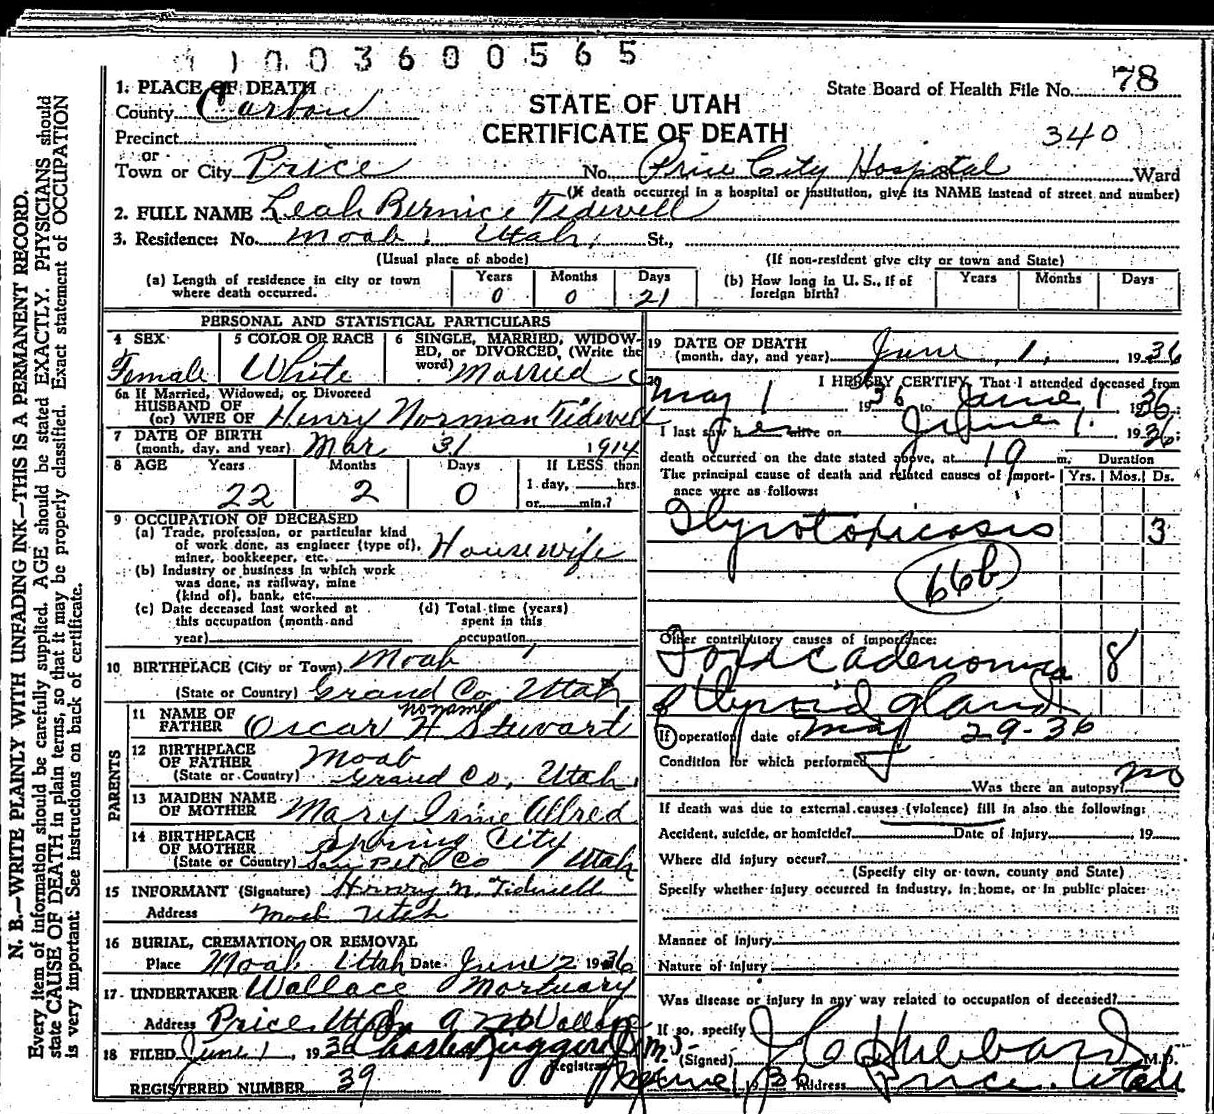 1003600565
1. PLACE OF DEATH
County Carbon
State Board of Health File No. 78
STATE OF UTAH
CERTIFICATE OF DEATH
340
Precinct
or
Town or City Price No. Price City Hospital Ward
(If death occurred in a hospital or institution, give its NAME instead of street and number)
2. FULL NAME Leah Bernice Tidwell
3. Residence: No. Moab, Utah, St.,
(Usual place of abode) (If non-resident give city or town and State)
(a) Length of residence in city or town where death occurred. Years 0 Months 0 Days 21
(b) How long in U. S., if of foreign birth? Years Months Days
PERSONAL AND STATISTICAL PARTICULARS
4 SEX Female
5 COLOR OR RACE White
6 SINGLE, MARRIED, WIDOWED, or DIVORCED, (Write the word) Married
6a If Married, Widowed, or Divorced
HUSBAND OF
(or) WIFE OF Henry Norman Tidwell
7 DATE OF BIRTH
(month, day, and year) Mar 31 1914
8 AGE Years 22 Months 2 Days 0 If LESS than
1 day, hrs.
or min.?
9 OCCUPATION OF DECEASED
(a) Trade, profession, or particular kind
of work done, as engineer (type of),
miner, bookkeeper, etc. Housewife
(b) Industry or business in which work
was done, as railway, mine
(kind of), bank, etc.
(c) Date deceased last worked at
this occupation (month and
year)
(d) Total time (years)
spent in this
occupation
10 BIRTHPLACE (City or Town) Moab
(State or Country) Grand Co, Utah
PARENTS
11 NAME OF
FATHER Oscar H Stewart
no name
12 BIRTHPLACE
OF FATHER Moab
(State or Country) Grand Co, Utah
13 MAIDEN NAME
OF MOTHER Mary Irine Allred
14 BIRTHPLACE
OF MOTHER Spring City
(State or Country) San Pete Co Utah
15 INFORMANT (Signature) Henry N. Tidwell
Address Moab Utah
16 BURIAL, CREMATION, OR REMOVAL
Place Moab Utah Date June 2 1936
17 UNDERTAKER Wallace Mortuary
Address Price, Utah
18 FILED June 1, 1936
Registrar
REGISTERED NUMBER 39
19 DATE OF DEATH
(month, day, and year) June 1, 1936
20 I HEREBY CERTIFY, That I attended deceased from
May 1 1936 to June 1 1936;
I last saw her alive on June 1 1936;
death occurred on the date stated above, at 19 m. Duration
The principal cause of death and related causes of importance were as follows: Yrs. Mos. Ds.
Thyrotoxicosis 3
66b
Other contributory causes of importance:
Toxic adenoma 8
of thyroid gland
If operation, date of May 29-36
Condition for which performed
Was there an autopsy? no
If death was due to external causes (violence) fill in also the following:
Accident, suicide, or homicide? Date of injury 19
Where did injury occur?
(Specify city or town, county and State)
Specify whether injury occurred in industry, in home, or in public place:
Manner of injury
Nature of injury
Was disease or injury in any way related to occupation of deceased?
If so, specify
(Signed) J C Hubbard M.D.
Address Price, Utah
N. B.—WRITE PLAINLY WITH UNFADING INK—THIS IS A PERMANENT RECORD.
Every item of information should be carefully supplied. AGE should be stated EXACTLY. PHYSICIANS should
state CAUSE OF DEATH in plain terms, so that it may be properly classified. Exact statement of OCCUPATION
is very important. See instructions on back of certificate.